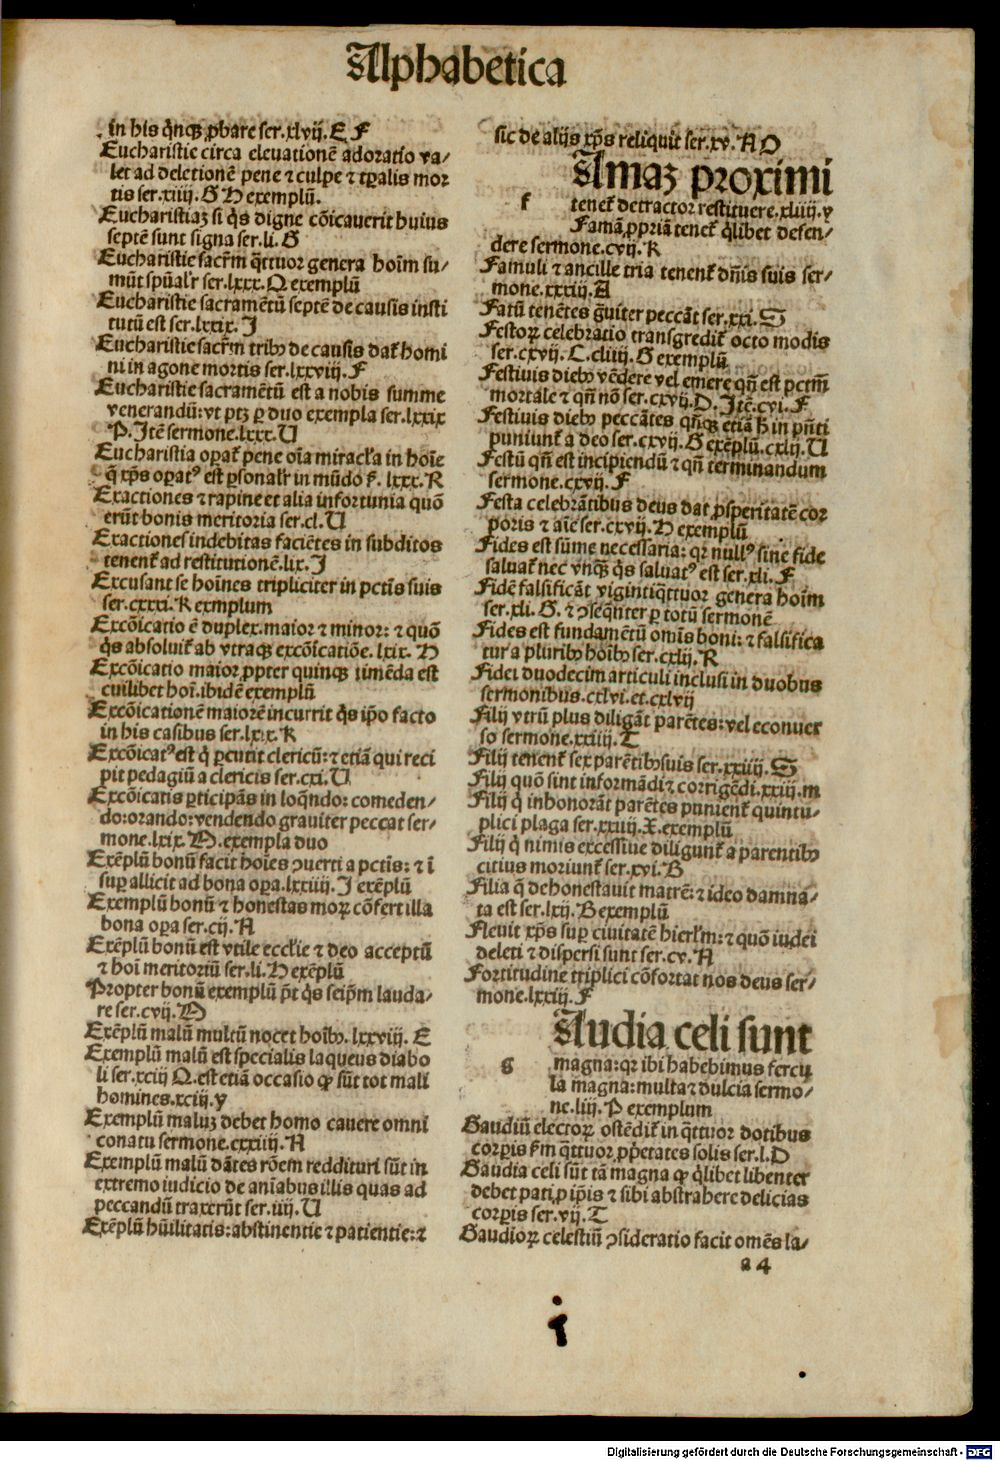 Alphabetica
in his q̃nqȝ ꝓbare ser.xlvij. E F
Eucharistie circa eleuationē adoratio va⸗
let ad deletionē pene ⁊ culpe ⁊ tꝑalis mor
tis ser.xiiij. G H exemplū.
Eucharistiaȝ si q̃s digne cōicauerit huius
septē sunt signa ser.li. G
Eucharistie sacrm̄ q̃ttuor genera hoīm su⸗
mūt spūal'r ser.lxxx. Q exemplū
Eucharistie sacramētū septē de causis insti
tutū est ser.lxxix. J
Eucharistie sacrm̄ tribꝰ de causis dat̄ homi
ni in agone mortis ser.lxxviij. F
Eucharistie sacramētū est a nobis summe
venerandū: vt ptȝ ꝑ duo exempla ser.lxxix
P. Itē sermone.lxxx. U
Eucharistia oꝑat̄ pene oīa mirac̄la in hoīe
q̄ xp̄s oꝑatꝰ est ꝑsonal'r in mūdo . lxxx. R
Exactiones ⁊ rapine et alia infortunia quō
erūt bonis meritoria ser.cl. U
Exactiones indebitas faciētes in subditos
tenent̄ ad restitutionē.lix. J
Excusant se hoīnes tripliciter in pctīs suis
ser.cxxxi. K exmplum
Excōicatio ē duplex.maior ⁊ minor: ⁊ quō
q̃s absoluit̄ ab vtraqȝ excōicatiōe. lxix. H
Excōicatio maior ꝓpter quinqȝ timēda est
cuilibet hoī.ibidē exemplū
Excōicationē maiorē incurrit q̃s ip̄o facto
in his casibus ser.lxix. K
Excōicatꝰ est q̃ ꝑcutit clericū: ⁊ etiā qui reci
pit pedagiū a clericis ser.cxi. U
Excōicatis ꝑticipās in loq̄ndo: comeden⸗
do: orando: vendendo grauiter peccat ser⸗
mone.lxix. M. exempla duo
Exēplū bonū facit hoīes ꝯuerti a pctīs: ⁊ ī
suꝑ allicit ad bona oꝑa.lxxiiij. J exēplū
Exemplū bonū ⁊ honestas moꝝ cōfert illa
bona oꝑa ser.cij. A
Exēplū bonū est vtile eccl̄ie ⁊ deo acceptū
⁊ hoī meritoriū ser.li. H exēplū
Propter bonū exemplū p̄t q̃s seip̄m lauda⸗
re ser.cvij. M
Exēplū malū multū nocet hoībꝰ. lxxviij. E
Exemplū malū est specialis laqueus diabo
li ser.xciij Q. est etiā occasio ꝙ sūt tot mali
homines.xciij. y
Exemplū maluȝ debet homo cauere omni
conatu sermone.cxxiiij. A
Exemplū malū dātes rōem reddituri sūt in
extremo iudicio de aniabus illis quas ad
peccandū traxerūt ser.iiij. U
Exēplū hūilitatis: abstinentie ⁊ patientie: ⁊
sic de alijs xp̄s reliquit ser.xv. N O
Famaȝ proximi
f tenet̄ detractor restituere.xliiij. y
Famā ꝓpriā tenet̄ q̃libet defen⸗
dere sermone.cvij. K
Famuli ⁊ ancille tria tenent̄ dn̄is suis ser⸗
mone.xxxiij. A
Fatū tenētes g̃uiter peccāt ser.xxi. S
Festoꝝ celebratio transgredit̄ octo modis
ser.cxvij. C. cliiij. G exemplū
Festiuis diebꝰ vēdere vel emere qn̄ est pctm̄
mortale ⁊ qn̄ nō ser.cxvij. D. Itē.cvi. F
Festiuis diebꝰ peccātes qn̄qȝ etiā h̄ in p̄nti
puniunt̄ a deo ser.cxvij. G exēplū.cxlij. U
Festū qn̄ est incipiendū ⁊ qn̄ terminandum
sermone.cxvij. F
Festa celebrātibus deus dat ꝓsperitatē cor
poris ⁊ aīe ser.cxvij. H exemplū
Fides est sūme necessaria: qr nullꝰ sine fide
saluat̄ nec vnqȝ q̃s saluatꝰ est ser.xli. F
Fidē falsificāt vigintiq̃ttuor genera hoīm
ser.xli. G. ⁊ ꝯseq̃nter ꝑ totū sermonē
Fides est fundamētū om̄is boni: ⁊ falsifica
tur a pluribꝰ hoībꝰ ser.cxlij. R
Fidei duodecim articuli inclusi in duobus
sermonibus.cxlvi.et.cxlvij
Filij vtrū plus diligāt parētes: vel econuer
so sermone.xxiiij. T
Filij tenent̄ sex parētibꝰ suis ser.xxiiij. S
Filij quō sint informādi ⁊ corrigēdi.xxiij. m
Filij q̃ inhonorāt parētes punient̄ quintu⸗
plici plaga ser.xxiiij. X. exemplū
Filij q̃ nimis excessiue diligunt̄ a parentibꝰ
citius moriunt̄ ser.xvi. B
Filia q̄ dehonestauit matrē: ⁊ ideo damna⸗
ta est ser.lxij. B exemplū
Fleuit xp̄s suꝑ ciuitatē hierl̄m: ⁊ quō iudei
deleti ⁊ dispersi sunt ser.cv. A
Fortitudine triplici cōfortat nos deus ser⸗
mone.lxxiij. F
Gaudia celi sunt
g magna: qr ibi habebimus fercu
la magna: multa ⁊ dulcia sermo⸗
ne.liij. P exemplum
Gaudiū electoꝝ ostēdit̄ in q̃ttuor dotibus
corꝑis s̄m q̃ttuor ꝓprietates solis ser.l. D
Gaudia celi sūt tā magna ꝙ q̃libet libenter
debet pati ꝓ ip̄is ⁊ sibi abstrahere delicias
corꝑis ser.vij. T
Gaudioꝝ celestiū ꝯsideratio facit omēs la⸗
a 4
Digitalisierung gefördert durch die Deutsche Forschungsgemeinschaft - DFG